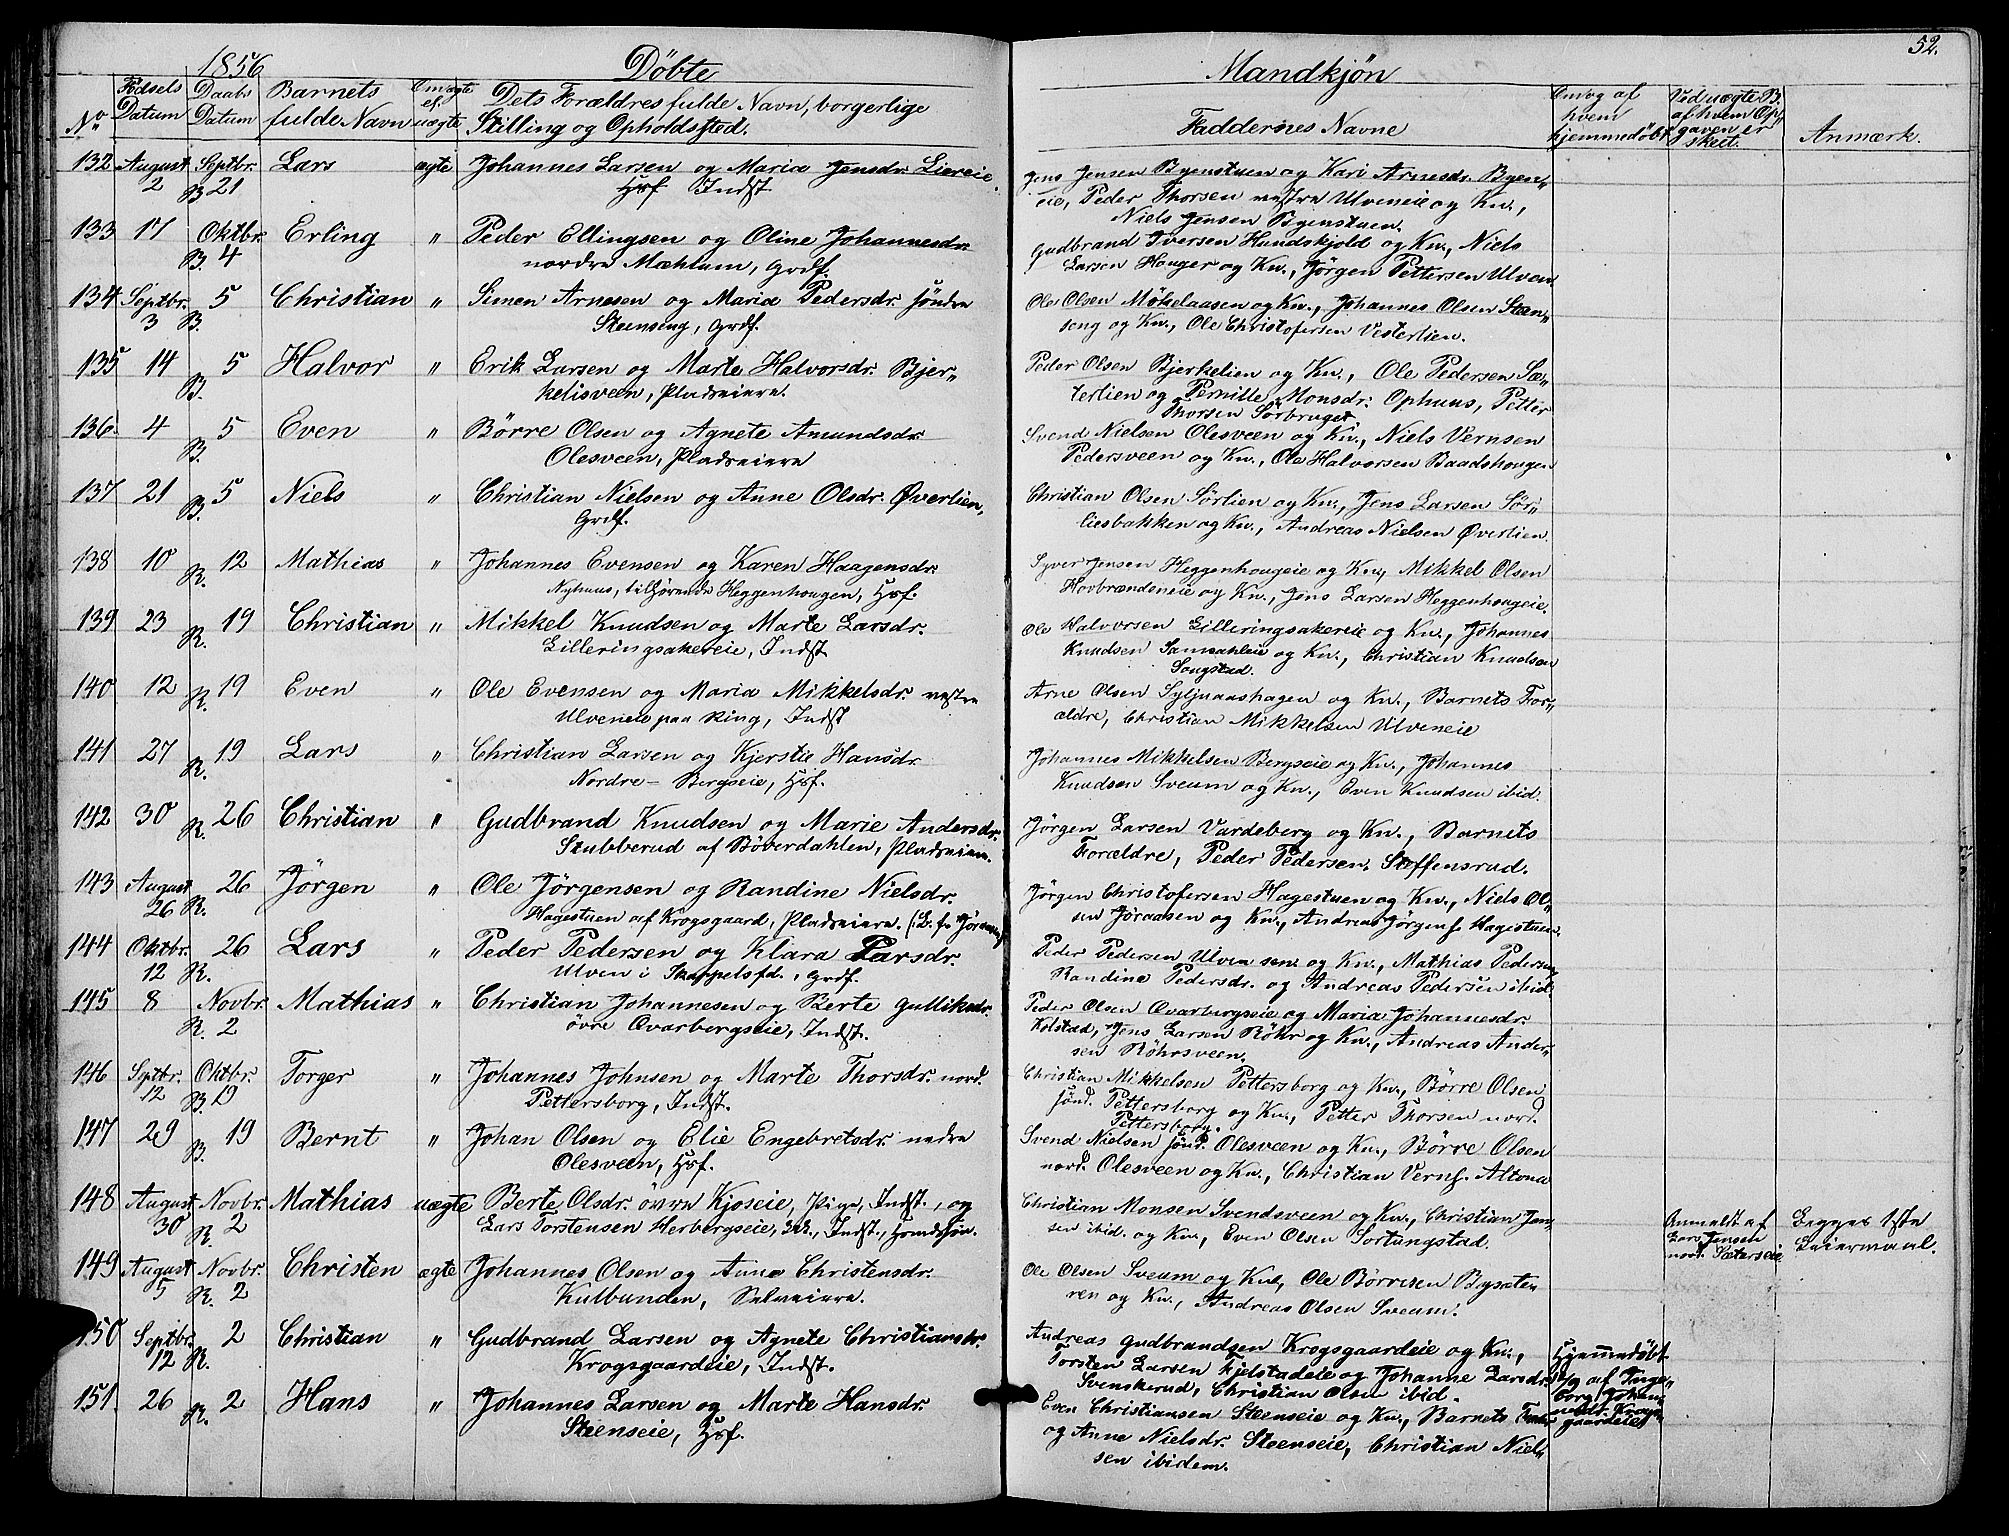 1856
Döbte
No
Fødsels Datum
Daabs Datum
Barnets fulde Navn
Om ægte el. uægte
Dets Forældres fulde Navn, borgerlige
Stilling og Opholdssted.
132 August 2 Septbr. B. 21 Lars ægte Johannes Larsen og Maria Jensdr. Liereie
Hsf Indst
133 17 Oktbr. B. 4 Erling " Peder Ellingsen og Oline Johannesdr.
nordre Mæhlum, Grdf.
134 Septbr. 3 B. 5 Christian " Simen Arnesen og Maria Pedersdr. söndre
Steenseng, Grdf.
135 14 B. 5 Halvor " Erik Larsen og Marte Halvorsdr. Bjer„
kelisveen, Pladseiere.
136 4 B. 5 Even " Börre Olsen og Agnete Amundsdr.
Olesveen, Pladseiere
137 21 B. 5 Niels " Christian Nielsen og Anne Olsdr. Øverlien,
Grdf.
138 10 R. 12 Mathias " Johannes Evensen og Karen Haagensdr.
Nyhuus, tilhørende Heggenhougen, Hsf.
139 23 R. 19 Christian " Mikkel Knudsen og Marte Larsdr.
Lilleringsakereie, Indst
140 12 R. 19 Even " Ole Evensen og Maria Mikkelsdr. vestre
Ulveneie paa Ring, Indst
141 27 R. 19 Lars " Christian Larsen og Kjerstie Hansdr.
Nordre- Bergseie, Hsf.
142 30 R. 26 Christian " Gudbrand Knudsen og Marie Andersdr.
Stubberud af Böverdahlen, Pladseiere.
143 August 26 R. 26 Jörgen " Ole Jörgensen og Randine Nielsdr.
Hagestuen af Krogsgaard, Pladseiere.
144 Oktbr. 12 R. 26 Lars " Peder Pedersen og Klara Larsdr.
Ulven i Skappelsfd., Grdf.
145 8 Novbr. R. 2 Mathias " Christian Johannesen og Berte Gulliksdr.
övre Qvarbergseie, Indst.
146 Septbr. 12 Oktbr. B. 19 Torger " Johannes Johnsen og Marte Thorsdr. nord.
Pettersborg, Indst.
147 29 B. 19 Bernt " Johan Olsen og Elie Engebretsdr. nedre
Olesveen, Hsf.
148 August 30 Novbr. R. 2 Mathias uægte Berte Olsdr. övre Kjoseie, Pige, Indst., og
Lars Torstensen Herbergseie, Indst.,
149 August 5 Novbr. R. 2 Christen ægte Johannes Olsen og Anne Christensdr.
Kulbunden, Selveiere.
150 Septbr. 12 R. 2 Christian " Gudbrand Larsen og Agnete Christiansdr.
Krogsgaardeie, Indst.
151. 26 R. 2 Hans " Johannes Larsen og Marte Hansdr.
Steenseie, Hsf.
52.
Mandkjön
Faddernes Navne
Om og af hvem hjemmedöbt
Ved uægte B. af hvem Opgaven er skeet.
Anmærk.
Jens Jensen Byenstuen og Kari Arnesdr. Byen„
eie, Peder Thorsen vestre Ulveneie og Kn.,
Niels Jensen Byenstuen.
Gudbrand Iversen Hundskjold og Kn., Niels
Larsen Houger og Kn., Jörgen Pettersen Ulven
Ole Olsen Mökelaasen og Kn., Johannes Olsen Steen„
seng og Kn., Ole Christofersen Vesterlien.
Peder Olsen Bjerkelien og Kn., Ole Pedersen Sæ„
terlien og Pernille Monsdr. Ophuus, Petter
Thorsen Sörbruget
Svend Nielsen Olesveen og Kn., Niels Vernsen
Pedersveen og Kn., Ole Halvorsen Baadshougen
Christian Olsen Sörlien og Kn., Jens Larsen Sör„
liesbakken og Kn., Andreas Nielsen Øverlien.
Syver Jensen Heggenhougeie og Kn., Mikkel Olsen
Hovbrændeneie og Kn., Jens Larsen Heggenhougeie.
Ole Halvorsen Lilleringsakereie og Kn., Johannes
Knudsen og Kn., Christian Knudsen
Sougstad.
Arne Olsen Syljuaashagen og Kn., Barnets For„
ældre, Christian Mikkelsen Ulveneie
Johannes Mikkelsen Bergseie og Kn., Johannes
Knudsen Sveum og Kn., Even Knudsen ibid.
Jörgen Larsen Vardeberg og Kn., Barnets
Forældre, Peder Pedersen. Stoffensrud.
Jörgen Christofersen Hagestuen og Kn., Niels Ol„
sen Jöraasen og Kn., Andreas Jörgens. Hagestuen.
Peder Pedersen Ulven sen. og Kn., Mathias Pedersen,
Randine Pedersdr. og Andreas Pedersen ibid.
Peder Olsen Qvarbergseie og Maria Johannesdr.
Kolstad, Jens Larsen Röhr og Kn., Andreas Ander„
sen Röhrsveen.
Christian Mikkelsen Pettersborg og Kn., Börre Olsen
sönd. Pettersborg og Kn., Petter Thorsen nord.
Pettersborg.
Svend Nielsen sönd. Olesveen og Kn., Börre Olsen
nord. Olesveen og Kn., Christian Verns. Altona
Christian Monsen Svendsveen og Kn., Christian Jen„
sen ibid. og Kn., Even Olsen Sortungstad.
Anmeldt af
Lars Jensen
nord. Sæterseie
Begges 1ste
Leiermaal.
Ole Olsen Sveum og Kn., Ole Börresen Bysæte„
ren og Kn., Andreas Olsen Sveum.
Andreas Gudbrandsen Krogsgaardeie og Kn.,
Torsten Larsen Fjelstadeie og Johanne Larsdr.
Svenskerud, Christian Olsen ibid.
Hjemmedöbt
af Inge„
borg Johan„
nesdr. Krogs„
gaardeie
Even Christiansen Steenseie og Kn., Barnets Fader
og Anne Nielsdr. Steenseie, Christian Niel„
sen ibidem.